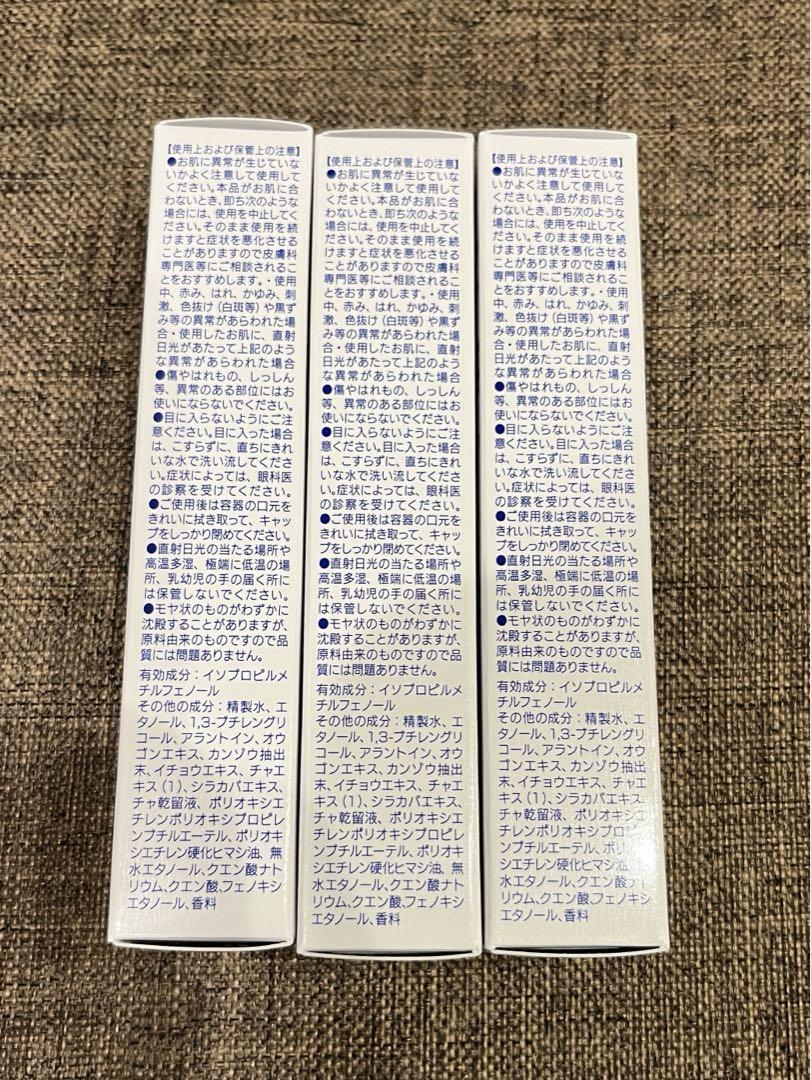 【使用上および保管上の注意】
●お肌に異常が生じていな
いかよく注意して使用して
ください。本品がお肌に合
わないとき、即ち次のような
場合には、使用を中止してく
ださい。そのまま使用を続
けますと症状を悪化させる
ことがありますので皮膚科
専門医等にご相談されるこ
とをおすすめします。・使用
中、赤み、はれ、かゆみ、刺
激、色抜け(白斑等)や黒ず
み等の異常があらわれた場
合・使用したお肌に、直射
日光があたって上記のよう
な異常があらわれた場合
●傷やはれもの、しっしん
等、異常のある部位にはお
使いにならないでください。
●目に入らないようにご注
意ください。目に入った場合
は、こすらずに、直ちにきれ
いな水で洗い流してくださ
い。症状によっては、眼科医
の診察を受けてください。
●ご使用後は容器の口元を
きれいに拭き取って、キャッ
プをしっかり閉めてください。
●直射日光の当たる場所や
高温多湿、極端に低温の場
所、乳幼児の手の届く所に
は保管しないでください。
●モヤ状のものがわずかに
沈殿することがありますが、
原料由来のものですので品
質には問題ありません。
有効成分:イソプロピルメ
チルフェノール
その他の成分:精製水、エ
タノール、1,3-ブチレングリ
コール、アラントイン、オウ
ゴンエキス、カンゾウ抽出
末、イチョウエキス、チャエ
キス(1)、シラカバエキス、
チャ乾留液、ポリオキシエ
チレンポリオキシプロピレ
ンブチルエーテル、ポリオキ
シエチレン硬化ヒマシ油、無
水エタノール、クエン酸ナト
リウム、クエン酸、フェノキシ
エタノール、香料
【使用上および保管上の注意】
●お肌に異常が生じていな
いかよく注意して使用して
ください。本品がお肌に合
わないとき、即ち次のような
場合には、使用を中止してく
ださい。そのまま使用を続
けますと症状を悪化させる
ことがありますので皮膚科
専門医等にご相談されるこ
とをおすすめします。・使用
中、赤み、はれ、かゆみ、刺
激、色抜け(白斑等)や黒ず
み等の異常があらわれた場
合・使用したお肌に、直射
日光があたって上記のよう
な異常があらわれた場合
●傷やはれもの、しっしん
等、異常のある部位にはお
使いにならないでください。
●目に入らないようにご注
意ください。目に入った場合
は、こすらずに、直ちにきれ
いな水で洗い流してくださ
い。症状によっては、眼科医
の診察を受けてください。
●ご使用後は容器の口元を
きれいに拭き取って、キャッ
プをしっかり閉めてください。
●直射日光の当たる場所や
高温多湿、極端に低温の場
所、乳幼児の手の届く所に
は保管しないでください。
●モヤ状のものがわずかに
沈殿することがありますが、
原料由来のものですので品
質には問題ありません。
有効成分:イソプロピルメ
チルフェノール
その他の成分:精製水、エ
タノール、1,3-ブチレングリ
コール、アラントイン、オウ
ゴンエキス、カンゾウ抽出
末、イチョウエキス、チャエ
キス(1)、シラカバエキス、
チャ乾留液、ポリオキシエ
チレンポリオキシプロピレ
ンブチルエーテル、ポリオキ
シエチレン硬化ヒマシ油、無
水エタノール、クエン酸ナト
リウム、クエン酸、フェノキシ
エタノール、香料
【使用上および保管上の注意】
●お肌に異常が生じていな
いかよく注意して使用して
ください。本品がお肌に合
わないとき、即ち次のような
場合には、使用を中止してく
ださい。そのまま使用を続
けますと症状を悪化させる
ことがありますので皮膚科
専門医等にご相談されるこ
とをおすすめします。・使用
中、赤み、はれ、かゆみ、刺
激、色抜け(白斑等)や黒ず
み等の異常があらわれた場
合・使用したお肌に、直射
日光があたって上記のよう
な異常があらわれた場合
●傷やはれもの、しっしん
等、異常のある部位にはお
使いにならないでください。
●目に入らないようにご注
意ください。目に入った場合
は、こすらずに、直ちにきれ
いな水で洗い流してくださ
い。症状によっては、眼科医
の診察を受けてください。
●ご使用後は容器の口元を
きれいに拭き取って、キャッ
プをしっかり閉めてください。
●直射日光の当たる場所や
高温多湿、極端に低温の場
所、乳幼児の手の届く所に
は保管しないでください。
●モヤ状のものがわずかに
沈殿することがありますが、
原料由来のものですので品
質には問題ありません。
有効成分:イソプロピルメ
チルフェノール
その他の成分:精製水、エ
タノール、1,3-ブチレングリ
コール、アラントイン、オウ
ゴンエキス、カンゾウ抽出
末、イチョウエキス、チャエ
キス(1)、シラカバエキス、
チャ乾留液、ポリオキシエ
チレンポリオキシプロピレ
ンブチルエーテル、ポリ
シエチレン硬化ヒマシ油、
水エタノール、クエン酸ナト
リウム、クエン酸、フェノキシ
エタノール、香料